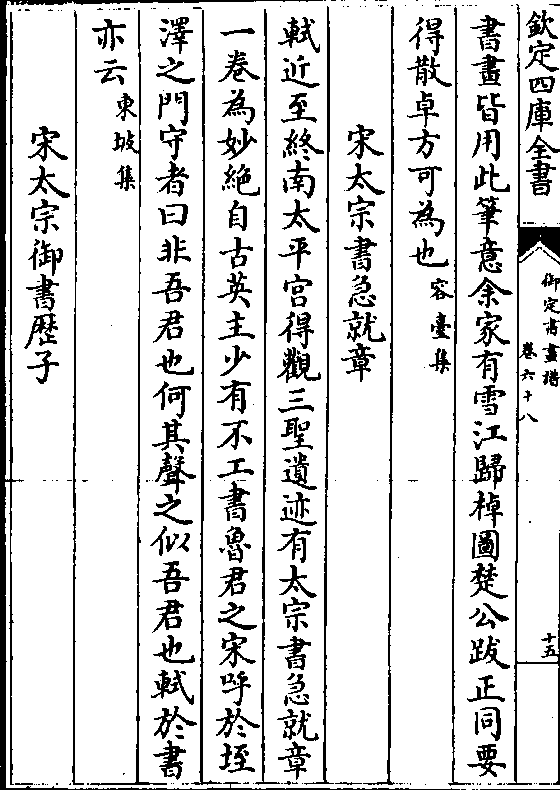 欽定四庫全書
御定書畫譜
卷六十八
十五
書畫皆用此筆意余家有雪江歸棹圖楚公跋正同要
得散卓方可為也容臺集
宋太宗書急就章
軾近至終南太平宮得觀三聖遺迹有太宗書急就章
一卷為妙絶自古英主少有不工書魯君之宋呼於垤
澤之門守者曰非吾君也何其聲之似吾君也軾於書
亦云東坡集
宋太宗御書歴子